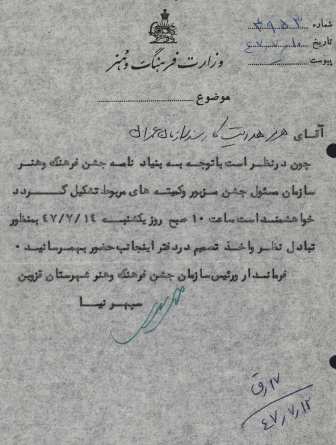 شماره ۳۹۵۳
تاریخ ۴۷/۷/۱۰
پیوست
وزارت فرهنگ و هنر
موضوع
آقای
چون درنظر است باتوجه به بنیاد نامه جشن فرهنگ وهنر
سازمان مسئول جشن مزبور وکمیته های مربوط تشکیل گردد
خواهشمند است ساعت ۱۰ صبح روز یکشنبه ۴۷/۷/۱۴ بمنظور
تبادل نظر واخذ تصمیم دردفتر اینجانب حضور بهمرسانید .
فرماندار ورئیس سازمان جشن فرهنگ وهنر شهرستان قزوین
سپهر نیا
۴۷/۷/۱۲